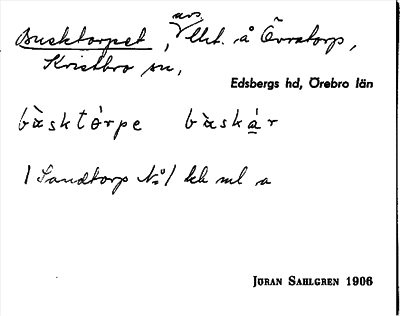 Busktorpet, avs. lht. å Övratorp,
Kristbro sn,
Edsbergs hd, Örebro län
bàsktórpe bàskár
/ Sandtorp No 1 kk ml a
JÖRAN SAHLGREN 1906